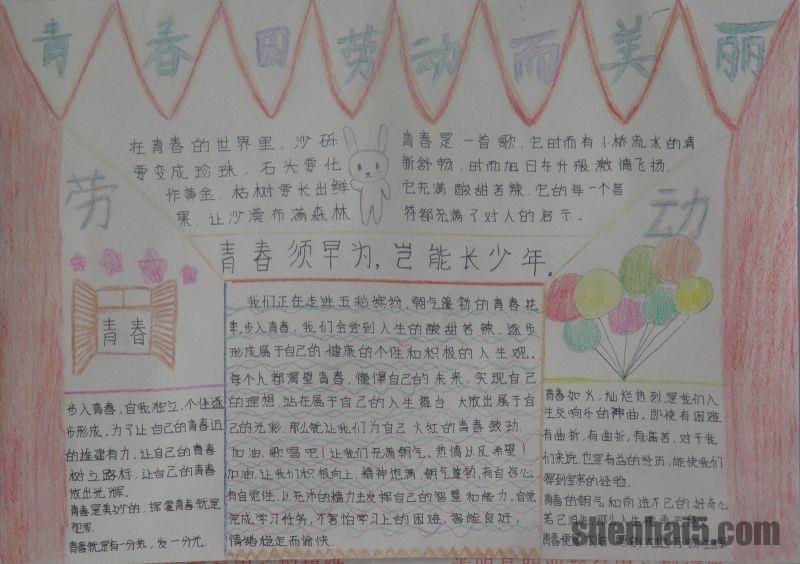 青春因劳动而美丽
在青春的世界里，沙砾
要变成珍珠，石头要化
作黄金，枯树要长出鲜
果，让沙漠布满森林
青春是一首歌，它时而有小桥流水的清
新舒畅，时而旭日东升般激情飞扬。
它充满酸甜苦辣，它的每一个音
符都充满了对人的启示。
劳
动
青春须早为，岂能长少年。
青春
步入青春，自我独立，个性逐
步形成。为了让自己的青春
的 有力，让自己的青春
树立路标，让自己的青春
放出光辉。
青春是美妙的，挥霍青春就是
犯罪。
青春就是有一分热，发一分光。
我们正在走进五彩缤纷、朝气蓬勃的青春花
季，步入青春，我们会尝到人生的酸甜苦辣，逐步
形成属于自己的健康的个性和积极的人生观。
每个人都渴望青春，憧憬自己的未来，实现自己
的理想，站在属于自己的人生舞台，大放出属于自
己的光彩，那么就让我们为自己火红的青春鼓劲、
加油、歌唱吧！让我们充满朝气、热情从反希望！
加油，让我们积极向上，精神饱满，朝气蓬勃，有自信心，
有自觉性，从充沛的精力去发挥自己的智慧和能力。自觉
完成学习任务，不害怕学习上的困难，智能良好，
情绪稳定而愉快。
青春如火，灿烂热烈，是我们人
生交响乐的神曲。即使有困难
有曲折，有曲折，有痛苦，对于我
们来说，也是有益的经历，能使我们
得到宝贵的经验。
青春的朝气和前进不已的好奇心
若已消失，那么人生
青春便
shenhai5.com